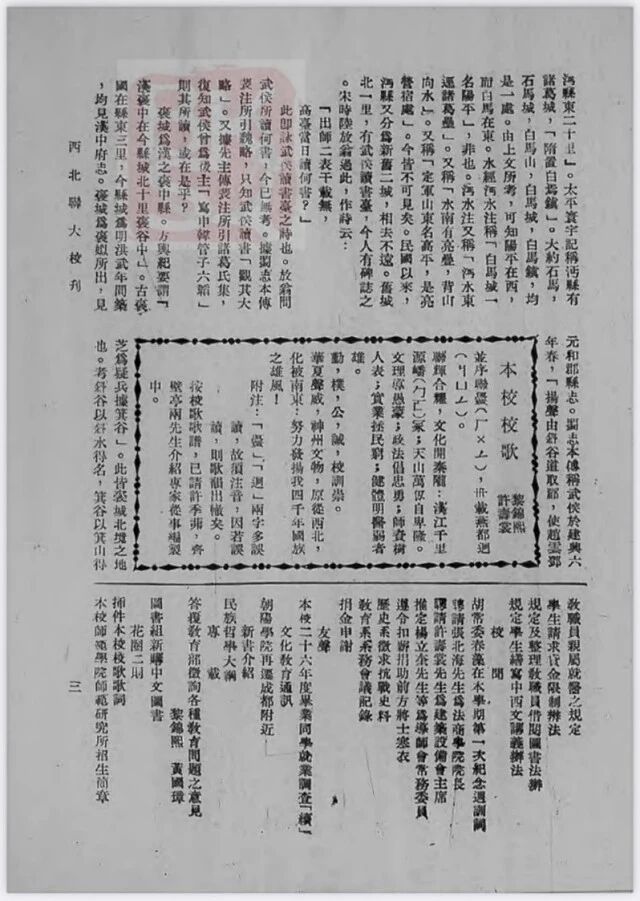 沔縣東二十里」。太平寰宇記稱沔縣有
諸葛城，「隋置白馬鎮」。大約石馬，
石馬城，白馬山，白馬城，白馬鎮，均
是一處。由上文所考，可知陽平在西，
而白馬在東。水經沔水注稱「白馬城一
名陽平」，非也。沔水注又稱「沔水東
逕諸葛壘」。又稱「水南有亮壘，背山
向水」。又稱「定軍山東名高平，是亮
營宿處」。今皆不可見矣。民國以來，
沔縣又分爲新舊二城，相去不遠。舊城
北一里，有武侯讀書臺，今人有碑誌之
。宋時陸放翁過此，作詩云：
「出師二表千載無，
高臺當日讀何書？」
此即詠武侯讀書臺之詩也。放翁問
武侯所讀何書，今已無考。據蜀志本傳
裴注所引魏略，只知武侯讀書「觀其大
略」。又據先主傳裴注所引諸葛氏集，
復知武侯曾爲後主「寫申韓管子六韜」
則其所讀，或在是乎？
褒城爲漢之褒中縣。方輿紀要謂「
漢褒中在今縣城北十里褒谷中」。古褒
國在縣東三里，今縣城爲明洪武年間築
，均見漢中府志。褒城爲褒姒所出，見
元和郡縣志。蜀志本傳稱武侯於建興六
年春，「揚聲由斜谷道取郿，使趙雲鄧
本校校歌
黎錦熙
許壽裳
並序聯黌（ㄏㄨㄥ），卅載燕都迥
（ㄐㄩㄥ）。
聯輝合耀，文化開秦隴：漢江千里
源嶓（ㄅㄛ）冢；天山萬仞自卑隆。
文理導愚蒙；政法倡忠勇；師資樹
人表；實業拯民窮；健體明醫弱者
雄。
勤，樸，公，誠，校訓崇。
華夏聲威，神州文物，原從西北，
化被南東；努力發揚我四千年國族
之雄風！
附注：「黌」，「迥」兩字多誤
讀，故須注音，因若誤
讀，則歌韻出轍矣。
按校歌歌譜，已請許季茀，齊
璧亭兩先生介紹專家從事編製
中。
芝爲疑兵據箕谷」。此皆褒城北境之地
也。考斜谷以斜水得名，箕谷以箕山得
教職員親屬就醫之規定
學生請求貸金限制辦法
規定及整理教職員借閱圖書法辦
規定學生繕寫中西文講義辦法
校聞
胡常委春藻在本學期第一次紀念週訓詞
聘請張北海先生爲法商學院院長
聘請許壽裳先生爲建築設備會主席
推定楊立奎先生等爲導師會常務委員
遵令扣辦捐助前方將士寒衣
歷史系徵求抗戰史料
教育系系務會議記錄
捐金申謝
友聲
本校二十六年度畢業同學就業調查「續」
文化教育通訊
朝陽學院再遷成都附近
新書介紹
民族哲學大綱
專載
答覆教育部徵詢各種教育問題之意見
黎錦熙 黃國璋
圖書組新購中文圖書
花園二則
插件本校校歌歌詞
本校師範學院師範研究所招生簡章
西北聯大校刊
三